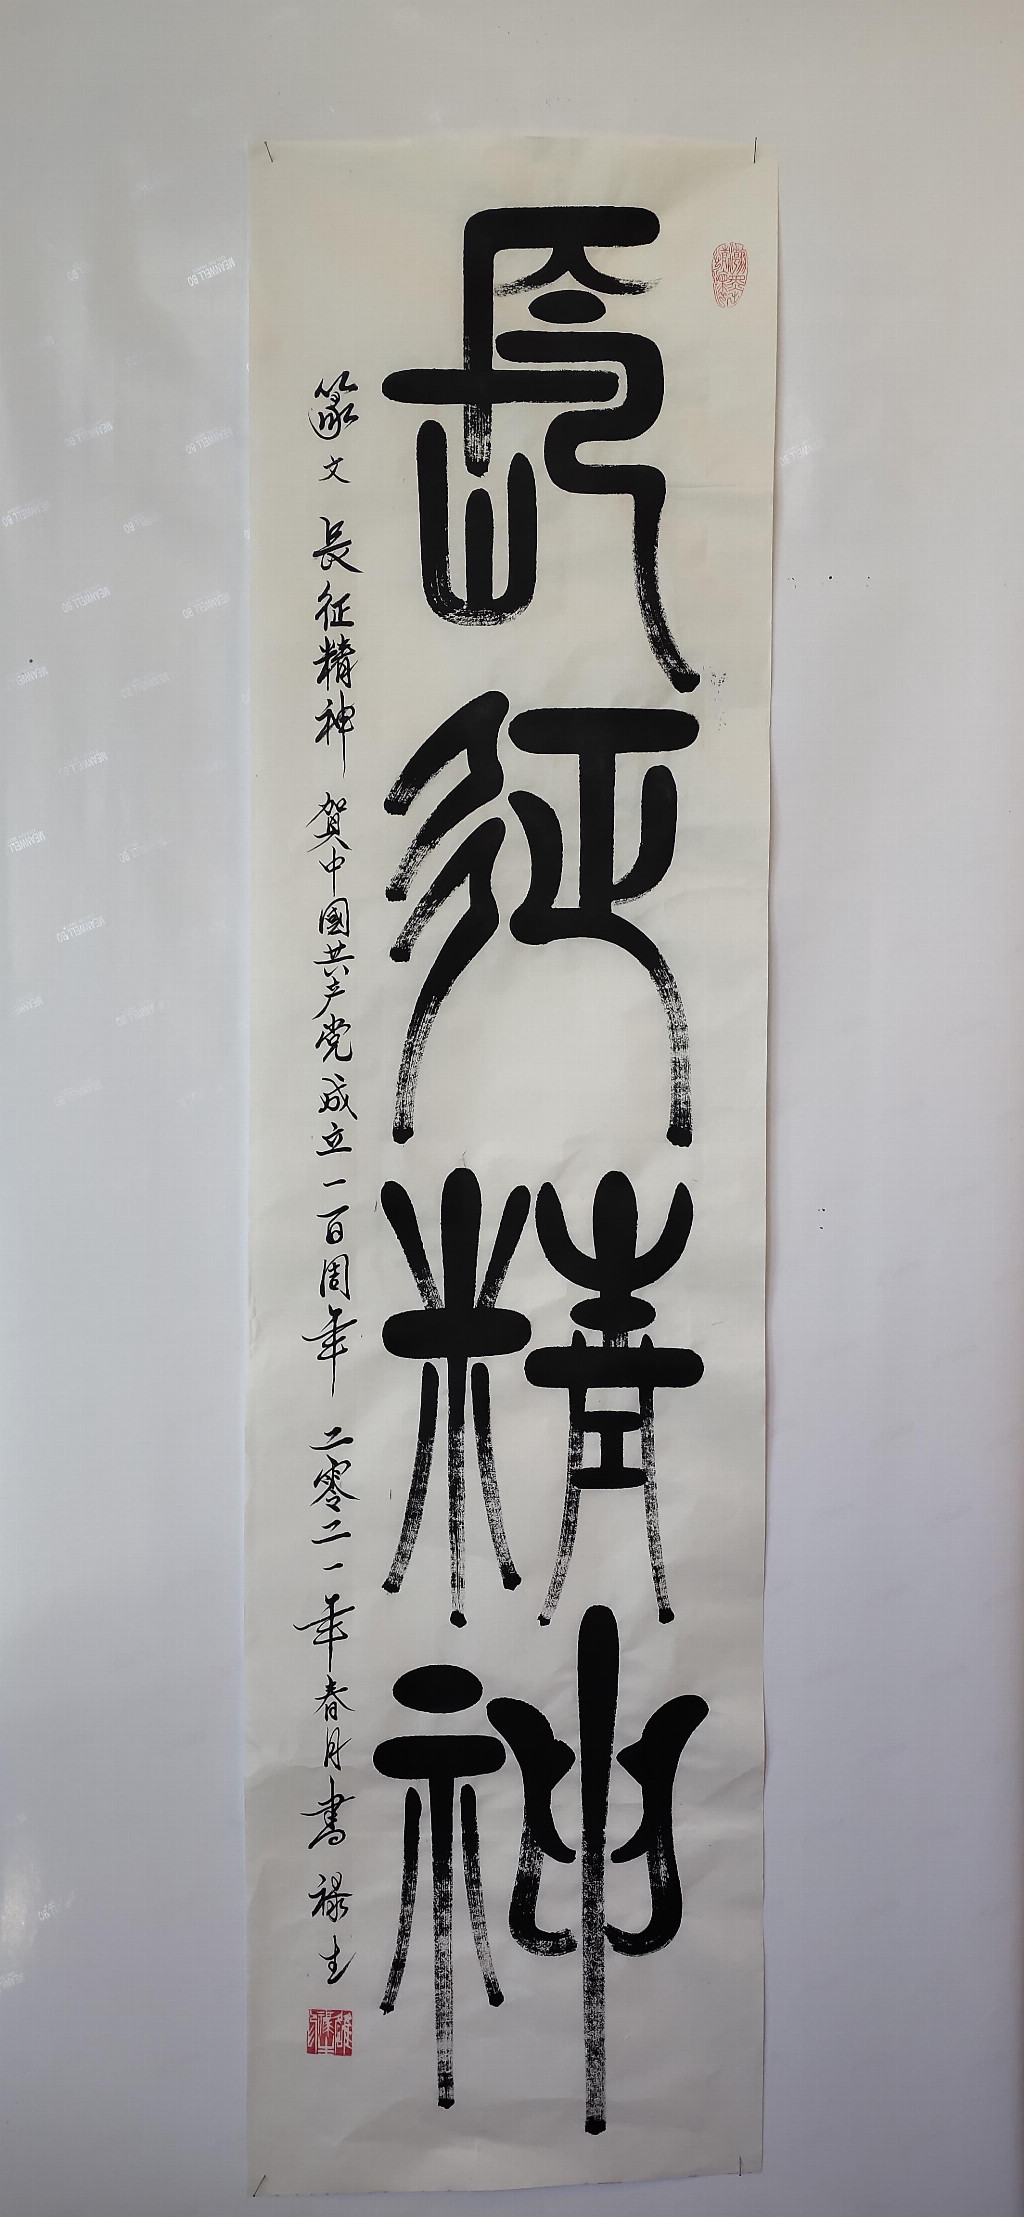 長征精神
篆文 長征精神 贺中國共产党成立一百周年 二零二一年春月書 禄生